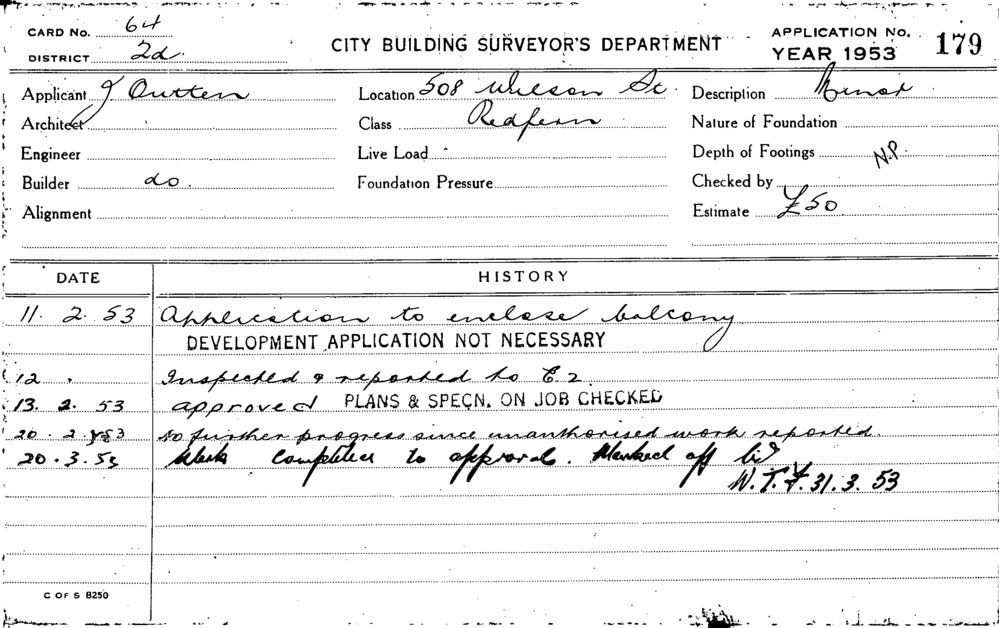 CARD No. 64
DISTRICT 2d
CITY BUILDING SURVEYOR'S DEPARTMENT
APPLICATION No.
YEAR 1953
179
Applicant J Outten
Location 508 Wilson St.
Description Minor
Architect
Class Redfern
Nature of Foundation
Engineer
Live Load
Depth of Footings N.P.
Builder do.
Foundation Pressure
Checked by
Alignment
Estimate £50
DATE HISTORY
11. 2. 53 Application to enclose balcony
DEVELOPMENT APPLICATION NOT NECESSARY
12 . Inspected & reported to C 2.
13. 2. 53 approved PLANS & SPECN. ON JOB CHECKED
20 . 2. 53 No further progress since unauthorised work reported.
20 . 3. 53 Work completed to approval. Marked off
31. 3. 53
C OF S 8250